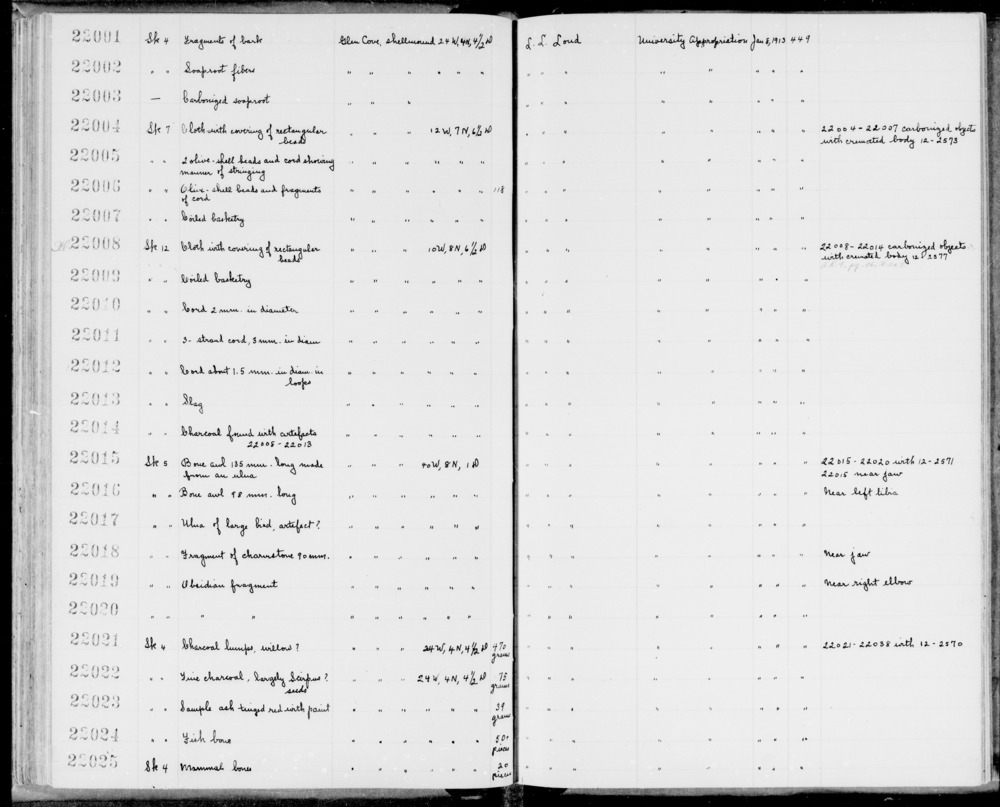 22001 Sk 4 Fragments of bark Glen Cove, shellmound 24 W, 4N, 4½ D L. L. Loud University Appropriation Jan 8, 1913 449
22002 " " Soaproot fibers " " " " " " " " " " " " " " "
22003 — Carbonized soaproot " " " " " " " " " " "
22004 Sk 7 Cloth with covering of rectangular " " " 12 W, 7 N, 6½ D " " " " " " " " 22004-22007 carbonized objects
beads with cremated body 12-2573
22005 " " 2 olive-shell beads and cord showing " " " " " " " " " " " " " "
manner of stringing
22006 " " Olive-shell beads and fragments " " " " " " 118 " " " " " " " "
of cord
22007 " " Coiled basketry " " " " " " " " " " " " " "
22008 Sk 12 Cloth with covering of rectangular " " " 10W, 8N, 6½ D " " " " " " " " 22008-22014 carbonized objects
beads with cremated body 12-2577
22009 " " Coiled basketry " " " " " " " " " " " " " "
22010 " " Cord 2 mm. in diameter " " " " " " " " " " " " " "
22011 " " 3-strand cord, 3 mm. in diam " " " " " " " " " " " " " "
22012 " " Cord about 1.5 mm. in diam. in " " " " " " " " " " " " " "
loops
22013 " " Slag " " " " " " " " " " " " " "
22014 " " Charcoal found with artefacts " " " " " " " " " " " " " "
22008-22013
22015 Sk 5 Bone awl 135 mm. long made " " " 40W, 8N, 1 D " " " " " " " " 22015-22020 with 12-2571
from an ulna 22015 near jaw
22016 " " Bone awl 98 mm. long " " " " " " " " " " " " " " Near left tibia
22017 " " Ulna of large bird, artefact? " " " " " " " " " " " " " "
22018 " " Fragment of charmstone 90 mm. " " " " " " " " " " " " " " Near jaw
22019 " " Obsidian fragment " " " " " " " " " " " " " " Near right elbow
22020 " " " " " " " " " " " " " " " " " "
22021 Sk 4 Charcoal lumps, willow? " " " 24W, 4N, 4½ D 470 " " " " " " " " 22021-22038 with 12-2570
grams
22022 " " Fine charcoal, largely Scirpus? " " " 24W, 4N, 4½ D 75 " " " " " " " "
seeds grams
22023 " " Sample ash tinged red with paint " " " " " " 39 " " " " " " " "
grams
22024 " " Fish bone " " " " " " 50+ " " " " " " " "
pieces
22025 Sk 4 Mammal bones " " " " " " 20 " " " " " " " "
pieces